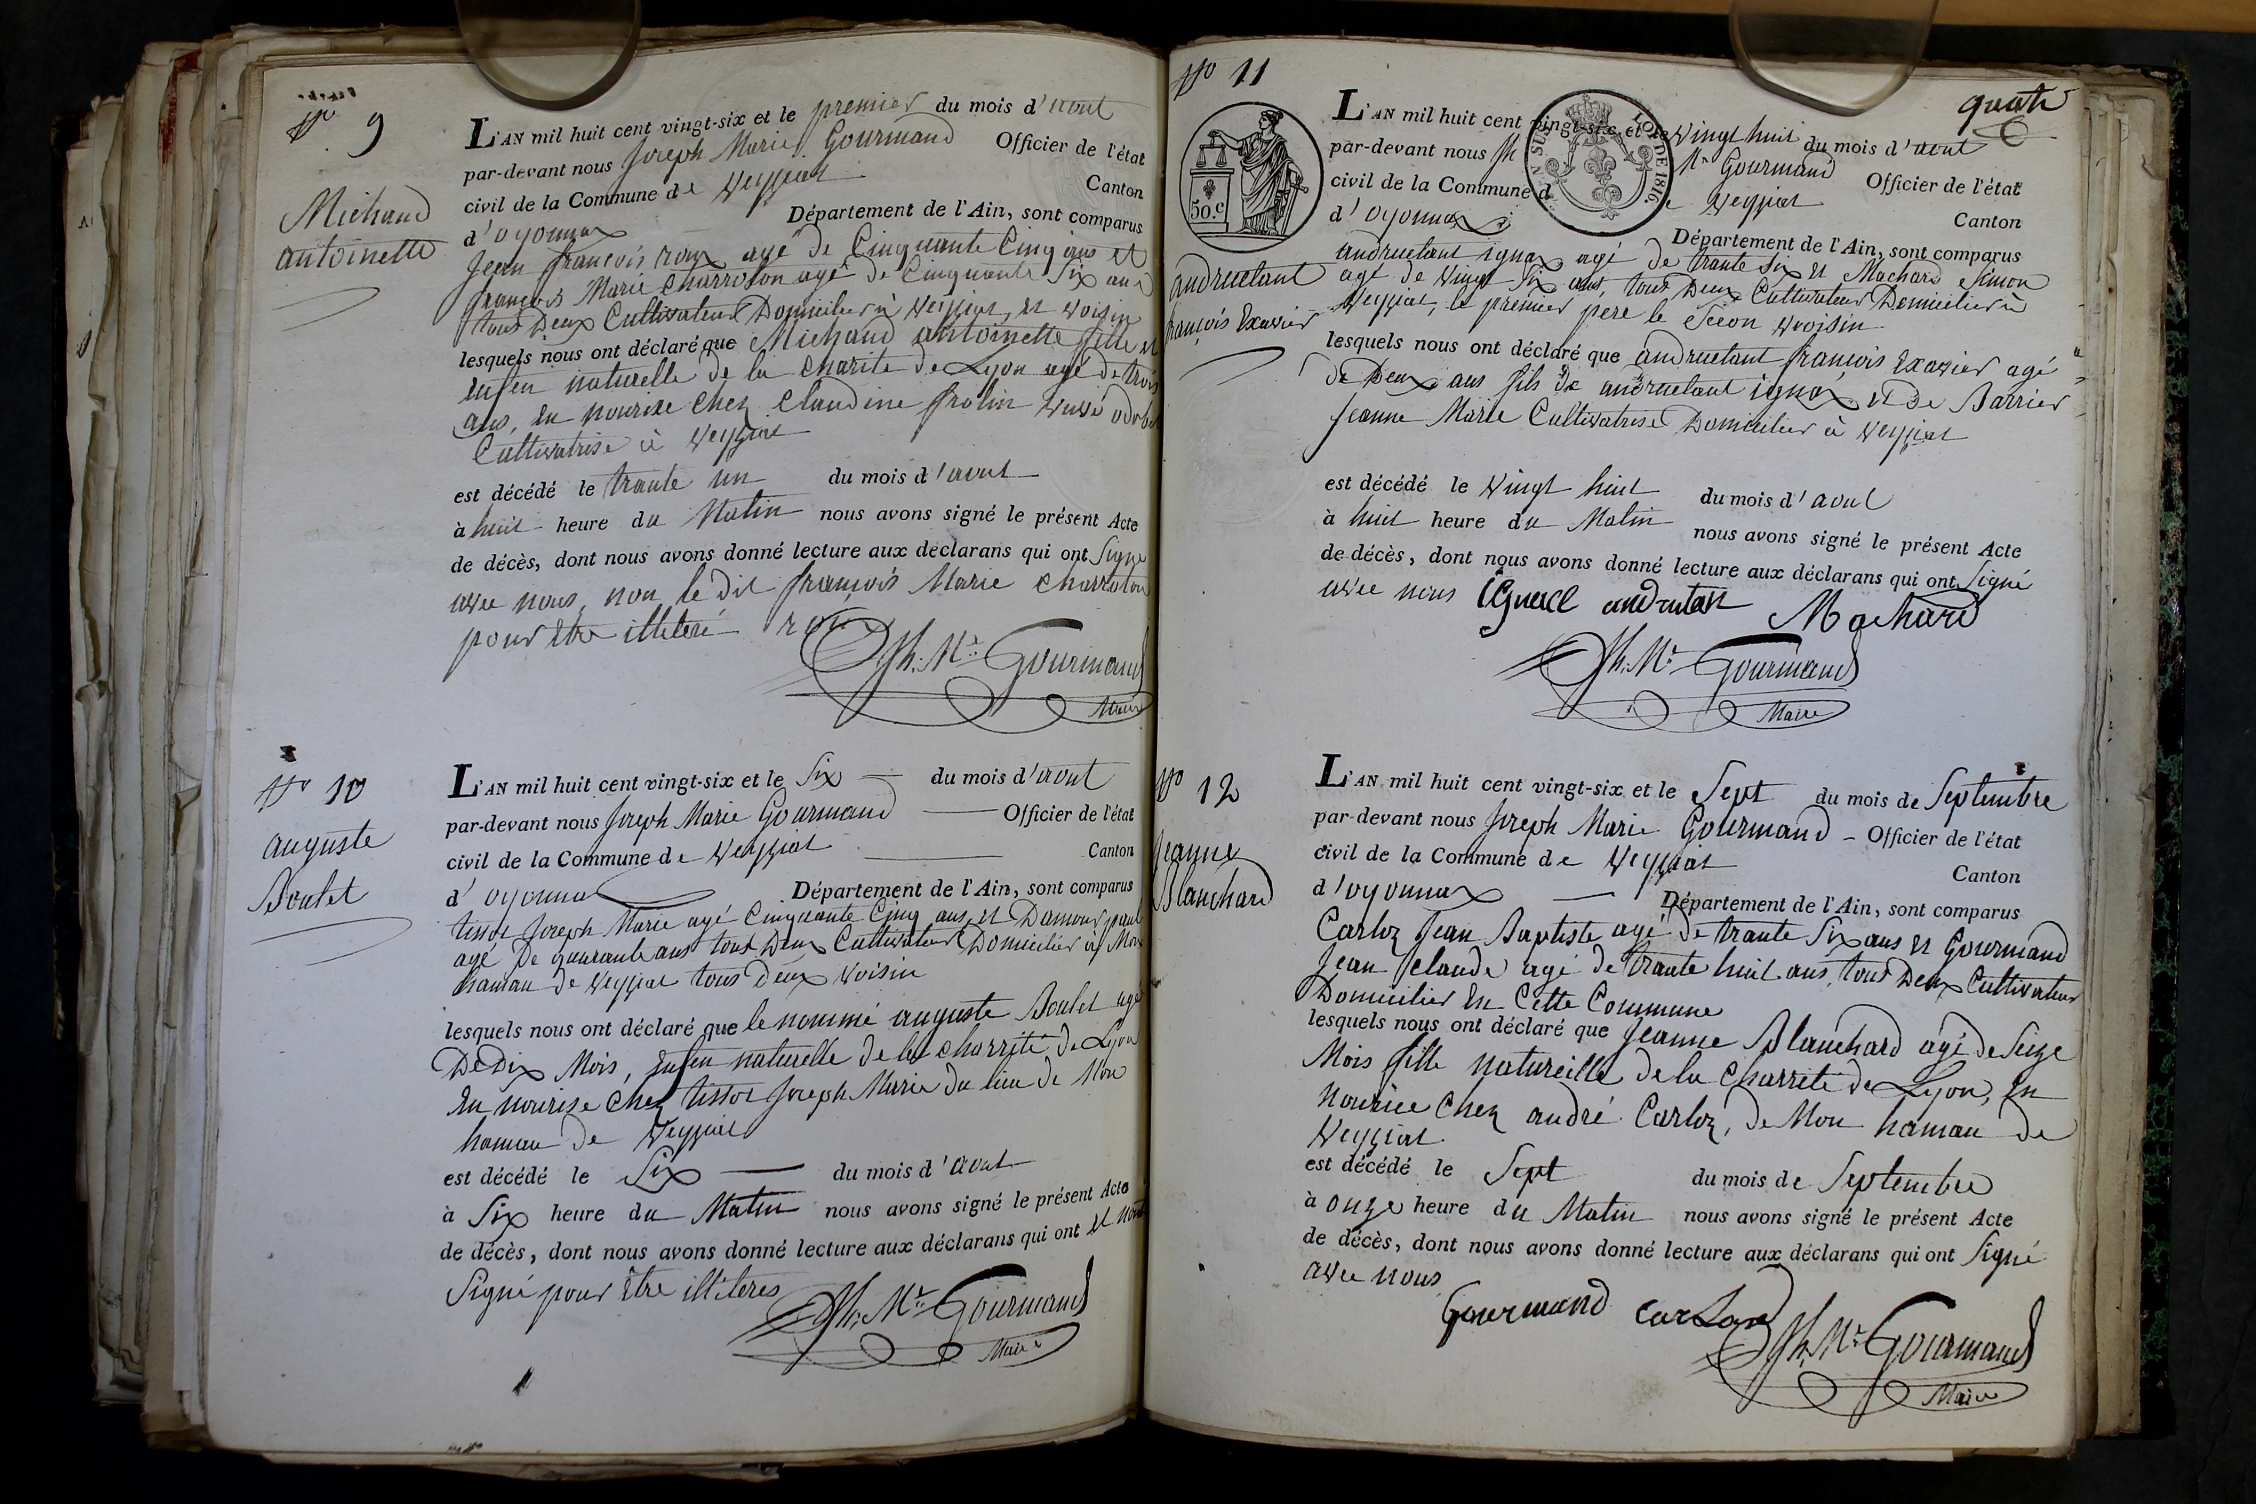 N° 9
Michaud
antoinette
L'AN mil huit cent vingt-six et le premier du mois d'aout
par-devant nous Joseph Marie Gourmand Officier de l'état
civil de la Commune de Veyziat Canton
d'oyonnax Département de l'Ain, sont comparus
Jean françois roux agé de Cinquante Cinq ans et
françois Marie Charroton agé de Cinquante Six ans
tous Deux Cultivateur Domicilier à Veyziat, et voisin
lesquels nous ont déclaré que Michaud antoinette fille et
enfen naturelle de la Charite de Lyon agé de trois
ans, en nourixe Chez Claudine frolin
Cultivatrise à Veyziat
est décédé le trante un du mois d'aout
à huit heure du Matin nous avons signé le présent Acte
de décès, dont nous avons donné lecture aux déclarans qui ont Signé
avec nous, non le dit françois Marie Charroton
pour être illiteré roux
Jh. Mie Gourmand
Maire
N° 10
auguste
Boulet
L'AN mil huit cent vingt-six et le Six du mois d'aout
par-devant nous Joseph Marie Gourmand Officier de l'état
civil de la Commune de Veyziat Canton
d'oyonnax Département de l'Ain, sont comparus
tissot Joseph Marie agé Cinquante Cinq ans et Damour paul
agé De quarante ans tous Deux Cultivateur Domicilier à Mon
hamau de Veyziat tous Deux voisin
lesquels nous ont déclaré que le nommé auguste Boulet agé
De Dix Mois, enfen naturelle de la charrité de Lyon
En nourise Chez tissot Joseph Marie du lieu de Mon
hamau de Veyziat
est décédé le Six du mois d'aout
à Six heure du Matin nous avons signé le présent Acte
de décès, dont nous avons donné lecture aux déclarans qui ont et non
Signé pour être illiteres
Jh. Mie Gourmand
Maire
N° 11
quatre
50.c
LOI DE 1816.
andruetant
françois Exavier
L'AN mil huit cent vingt-six et le vingt huit du mois d'aout
par-devant nous Jh Mie Gourmand Officier de l'état
civil de la Commune de Veyziat Canton
d'oyonnax Département de l'Ain, sont comparus
andruetant ignax agé de trante Six et Machard Simon
agé de vingt Six ans, tous Deux Cultivateur Domicilier à
Veyziat, le premier pere le Secon voisin
lesquels nous ont déclaré que andruetant françois Exavier agé
de Deux ans fils de andruetant ignax et De Barrier
jeanne Marie Cultivatrise Domicilier à Veyziat
est décédé le vingt huit du mois d'aout
à huit heure du Matin nous avons signé le présent Acte
de décès, dont nous avons donné lecture aux déclarans qui ont Signé
avec nous Machard
Jh. Mie Gourmand
Maire
N° 12
Jeanne
Blanchard
L'AN mil huit cent vingt-six et le Sept du mois de Septembre
par-devant nous Joseph Marie Gourmand Officier de l'état
civil de la Commune de Veyziat Canton
d'oyonnax Département de l'Ain, sont comparus
Carloz Jean Baptiste agé de trante Six ans et Gourmand
Jean Claude agé de trante huit ans, tous Deux Cultivateur
Domicilier En Cette Commune
lesquels nous ont déclaré que Jeanne Blanchard agé de Seize
Mois fille natureille de la Charrité de Lyon, En
Nourice Chez andré Carloz, de Mon hamau de
Veyziat
est décédé le Sept du mois de Septembre
à onze heure du Matin nous avons signé le présent Acte
de décès, dont nous avons donné lecture aux déclarans qui ont Signé
avec nous
Gourmand
Jh. Mie Gourmand
Maire